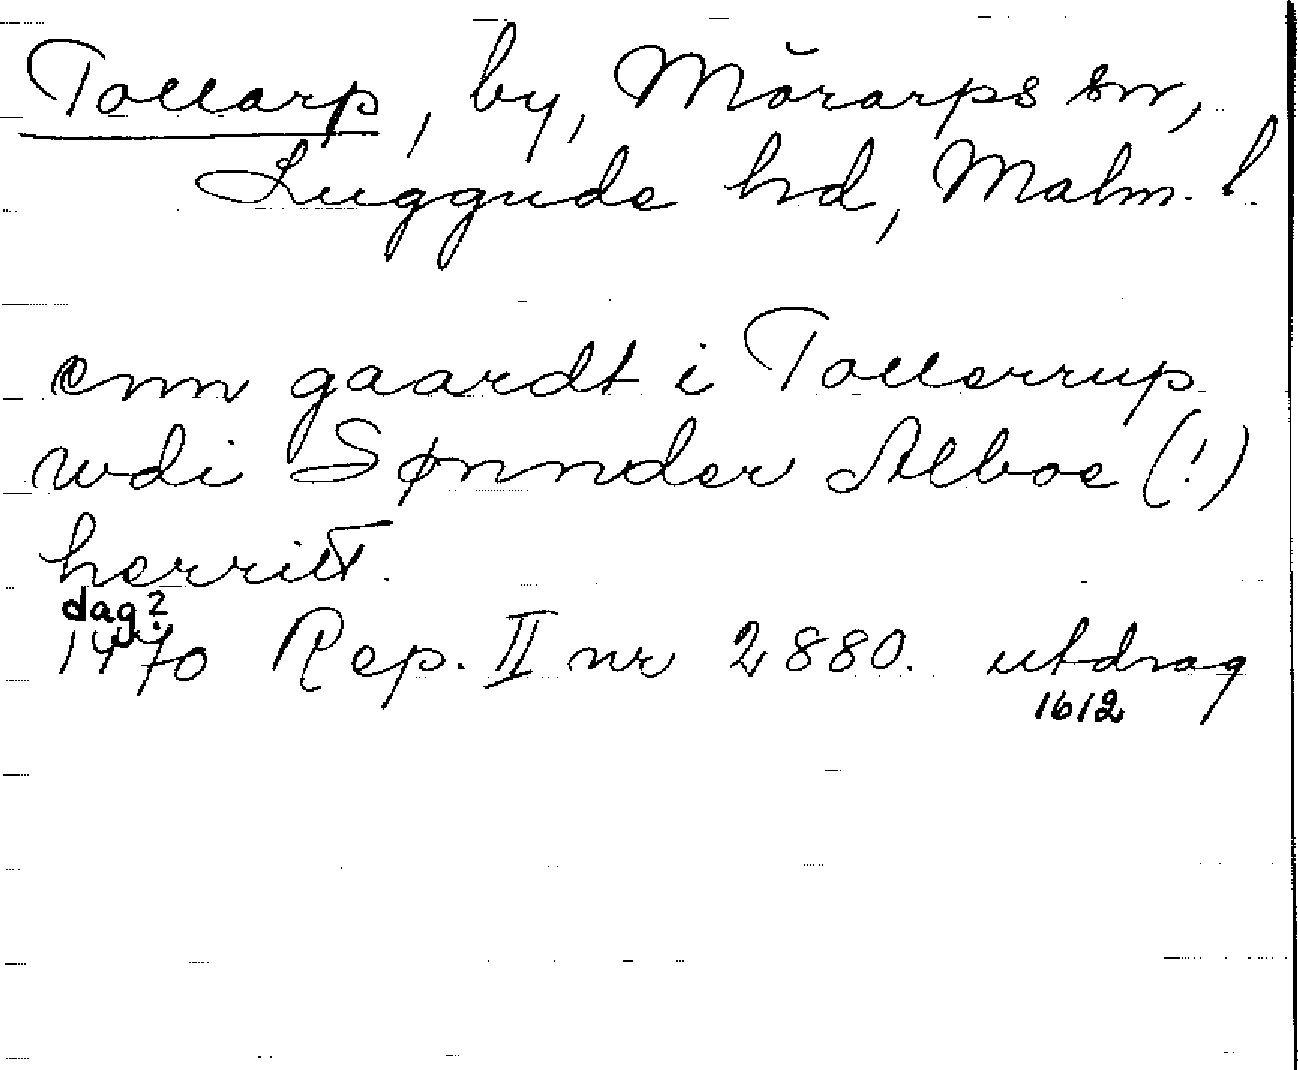 Tollarp, by, Mörarps sn,
Luggude hd, Malm. l.
enn gaardt i Tollerrup
wdi Sønnder Alboe (!)
herritt.
dag?
1470 Rep. II nr 2880. utdrag
1612